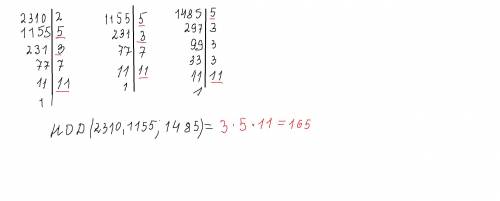 2310 | 2
1155 | 5
231 | 3
77 | 7
11 | 11
1
1155 | 5
231 | 3
77 | 7
11 | 11
1
1485 | 5
297 | 3
99 | 3
33 | 3
11 | 11
1
НОД (2310, 1155, 1485) = 3 · 5 · 11 = 165